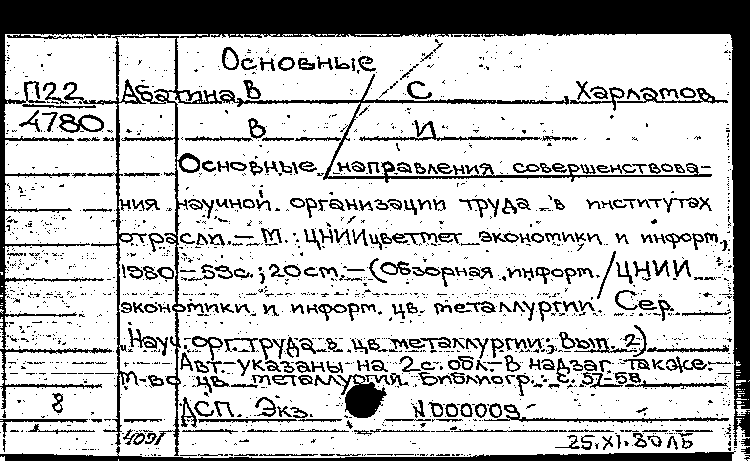 Основные
П22 Абатина, В С , Харламов,
4780 В И
Основные направления совершенствова-
ния научной организации труда в институтах
отрасли. — М. : ЦНИИцветмет экономики и информ.,
1980 — 59с.; 20 см. — (Обзорная информ. / ЦНИИ
экономики и информ. цв. металлургии. Сер
"Науч. орг. труда в цв металлургии; Вып. 2)
Авт. указаны на 2 с. обл. — В надзаг также:
М-во цв металлургии. Библиогр.: с. 57-58.
8 ДСП. Экз. N 000009
4091 25.XI.80 ЛБ